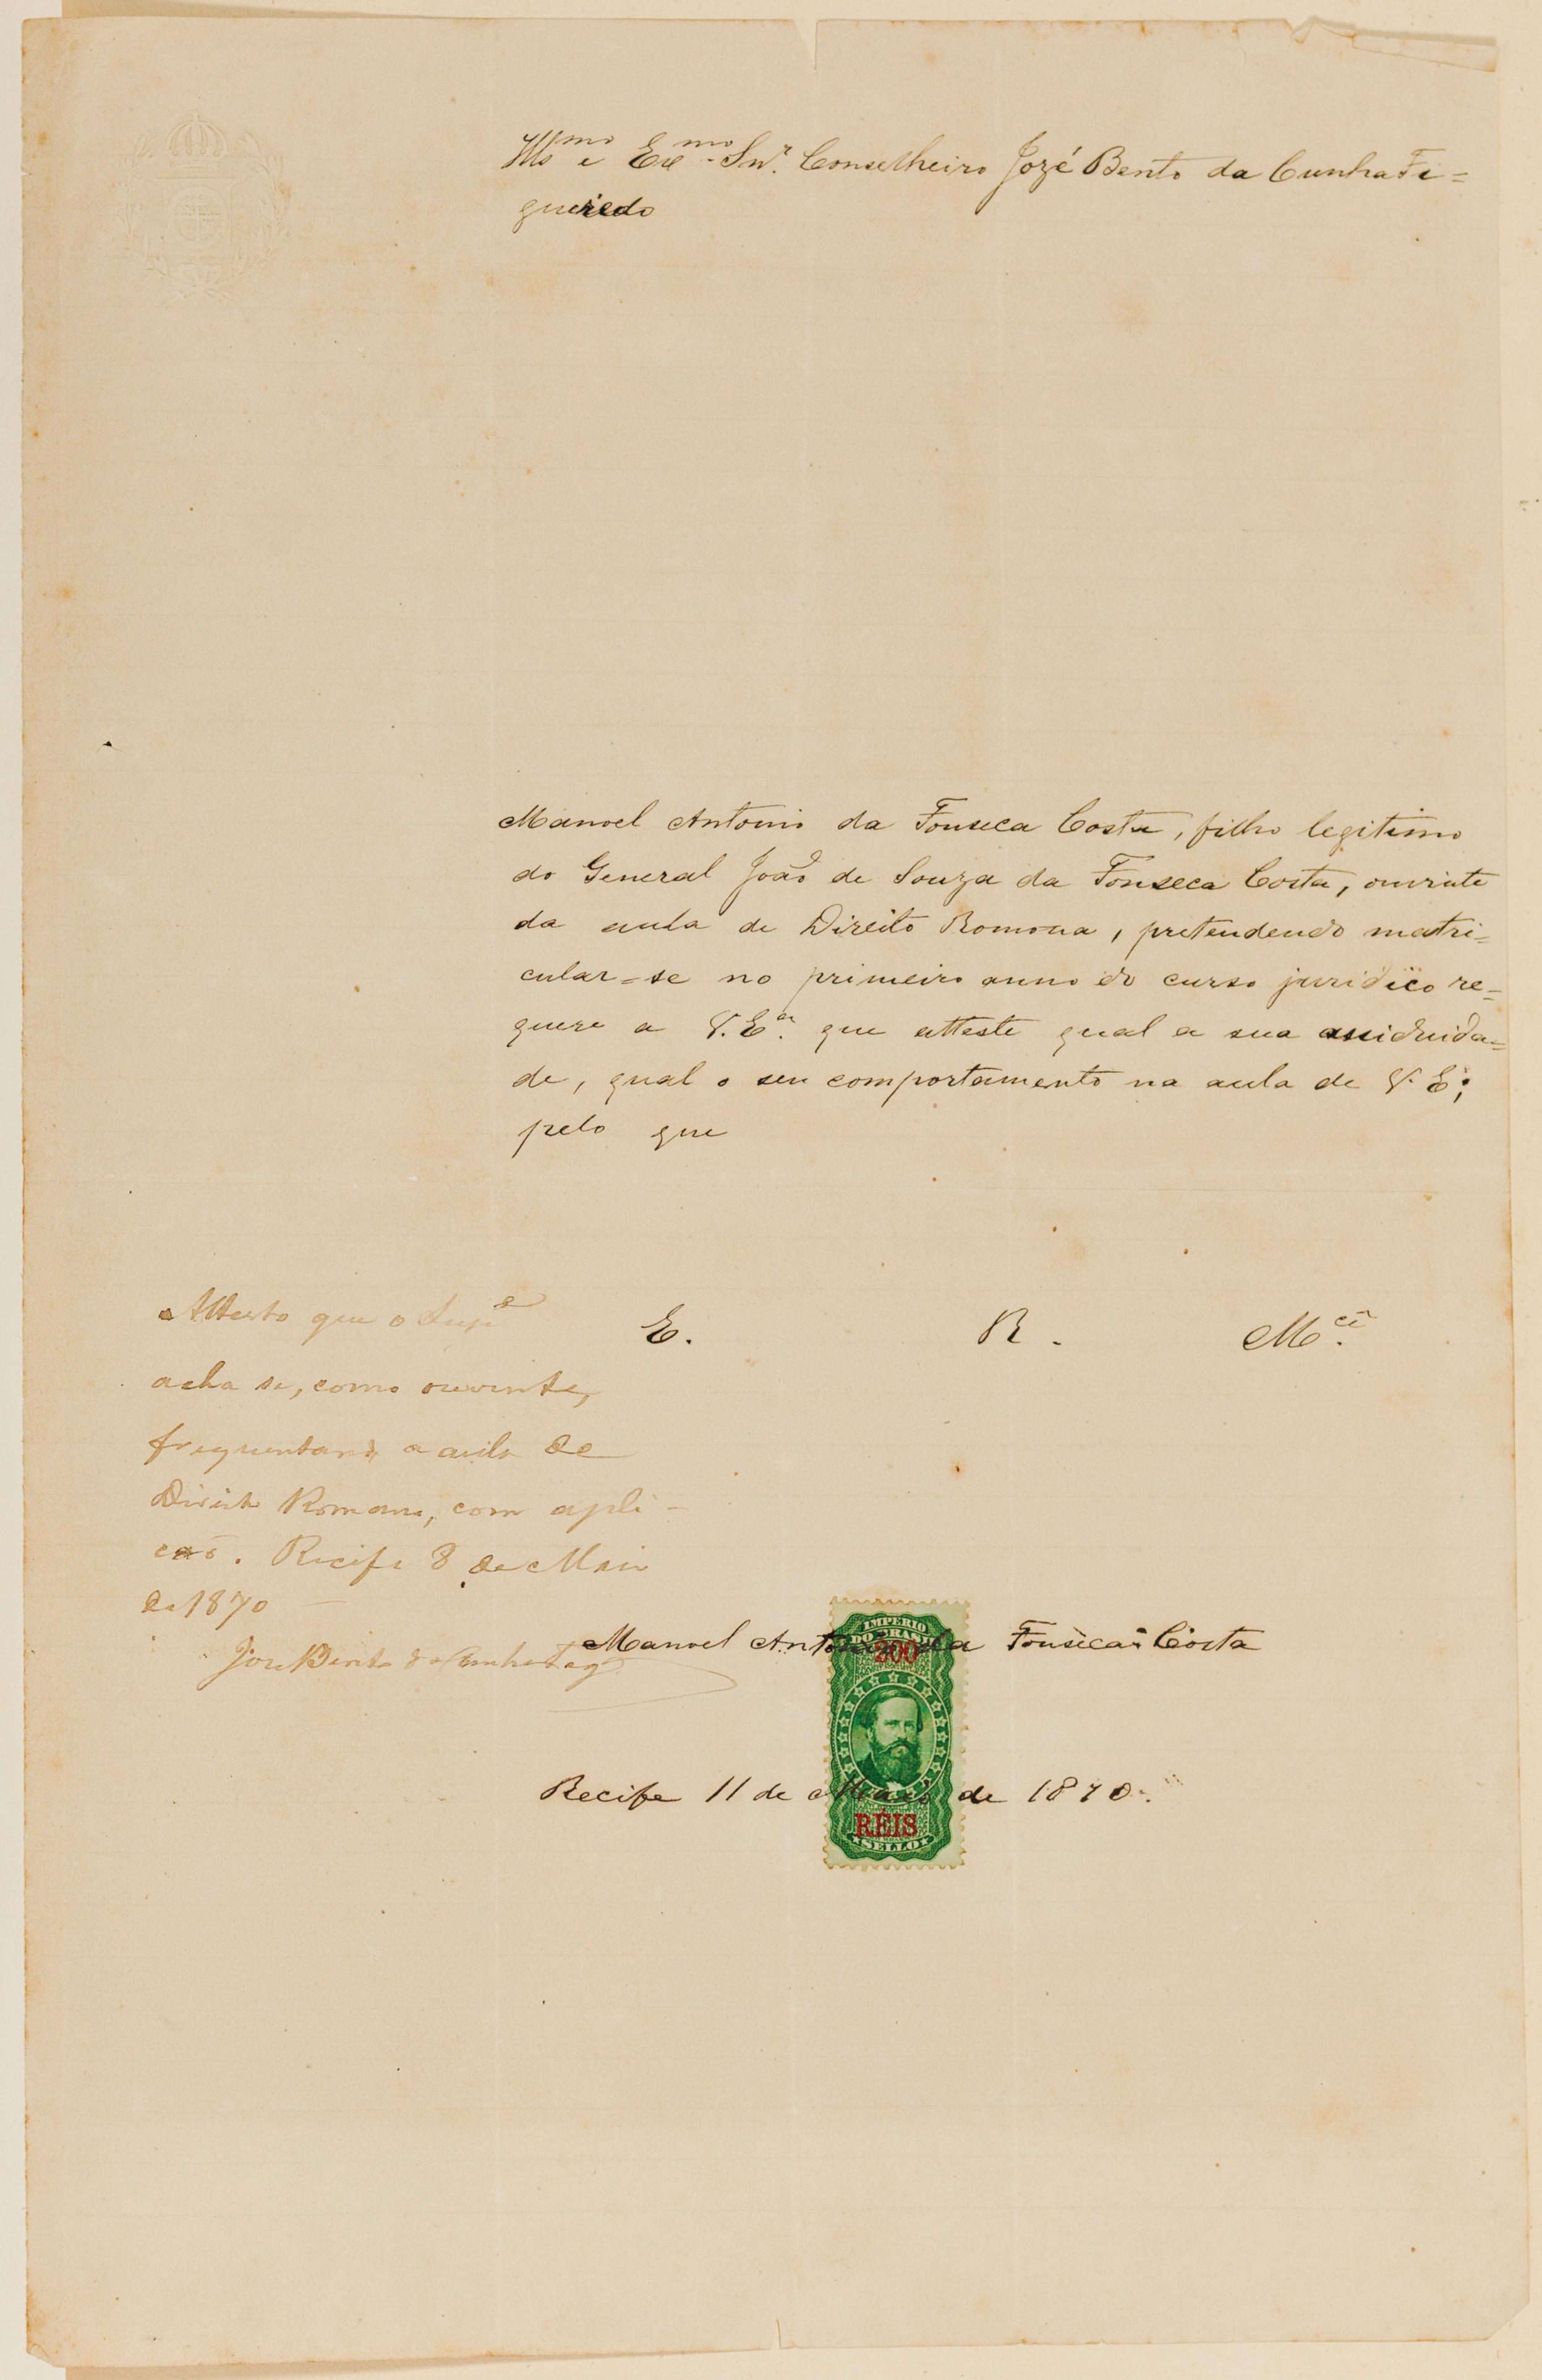 Illmo e Exmo. Snr. Conselheiro Jozé Bento da Cunha Fi=
gueiredo
Manoel Antonio da Fonseca Costa, filho legitimo
do General João de Souza da Fonseca Costa, ouvinte
da aula de Direito Romona, pretendendo matri=
cular=se no primeiro anno do curso juridico re=
quere a V. Ea. que atteste qual a sua assiduida=
de, qual o seu comportamento na aula de V. E;
pelo que
E. R. Mcê.
Attesto que o Suppe
acha se, como ouvinte,
frequentando a aula de
Direito Romano, com apli-
cação. Recife 8 de Maio
de 1870
José Bento da Cunha Fig
Manoel Antonio da Fonseca Costa
Recife 11 de de 1870.
IMPERIO
DO BRASIL
200
RÉIS
SELLO